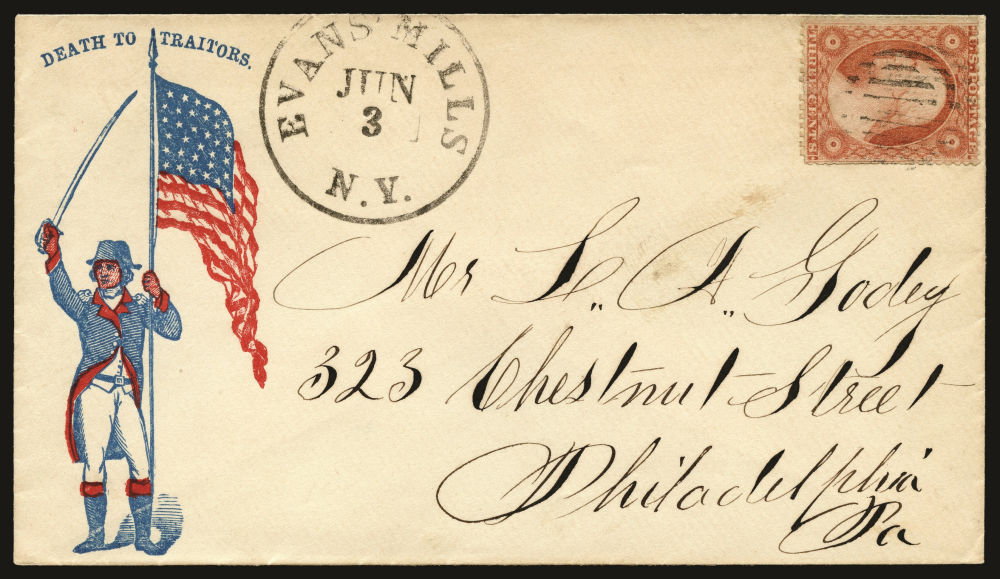 DEATH TO TRAITORS.
EVANS' MILLS
JUN
3
N.Y.
THREE CENTS
Mr L. A. Godey
323 Chestnut Street
Philadelphia
Pa